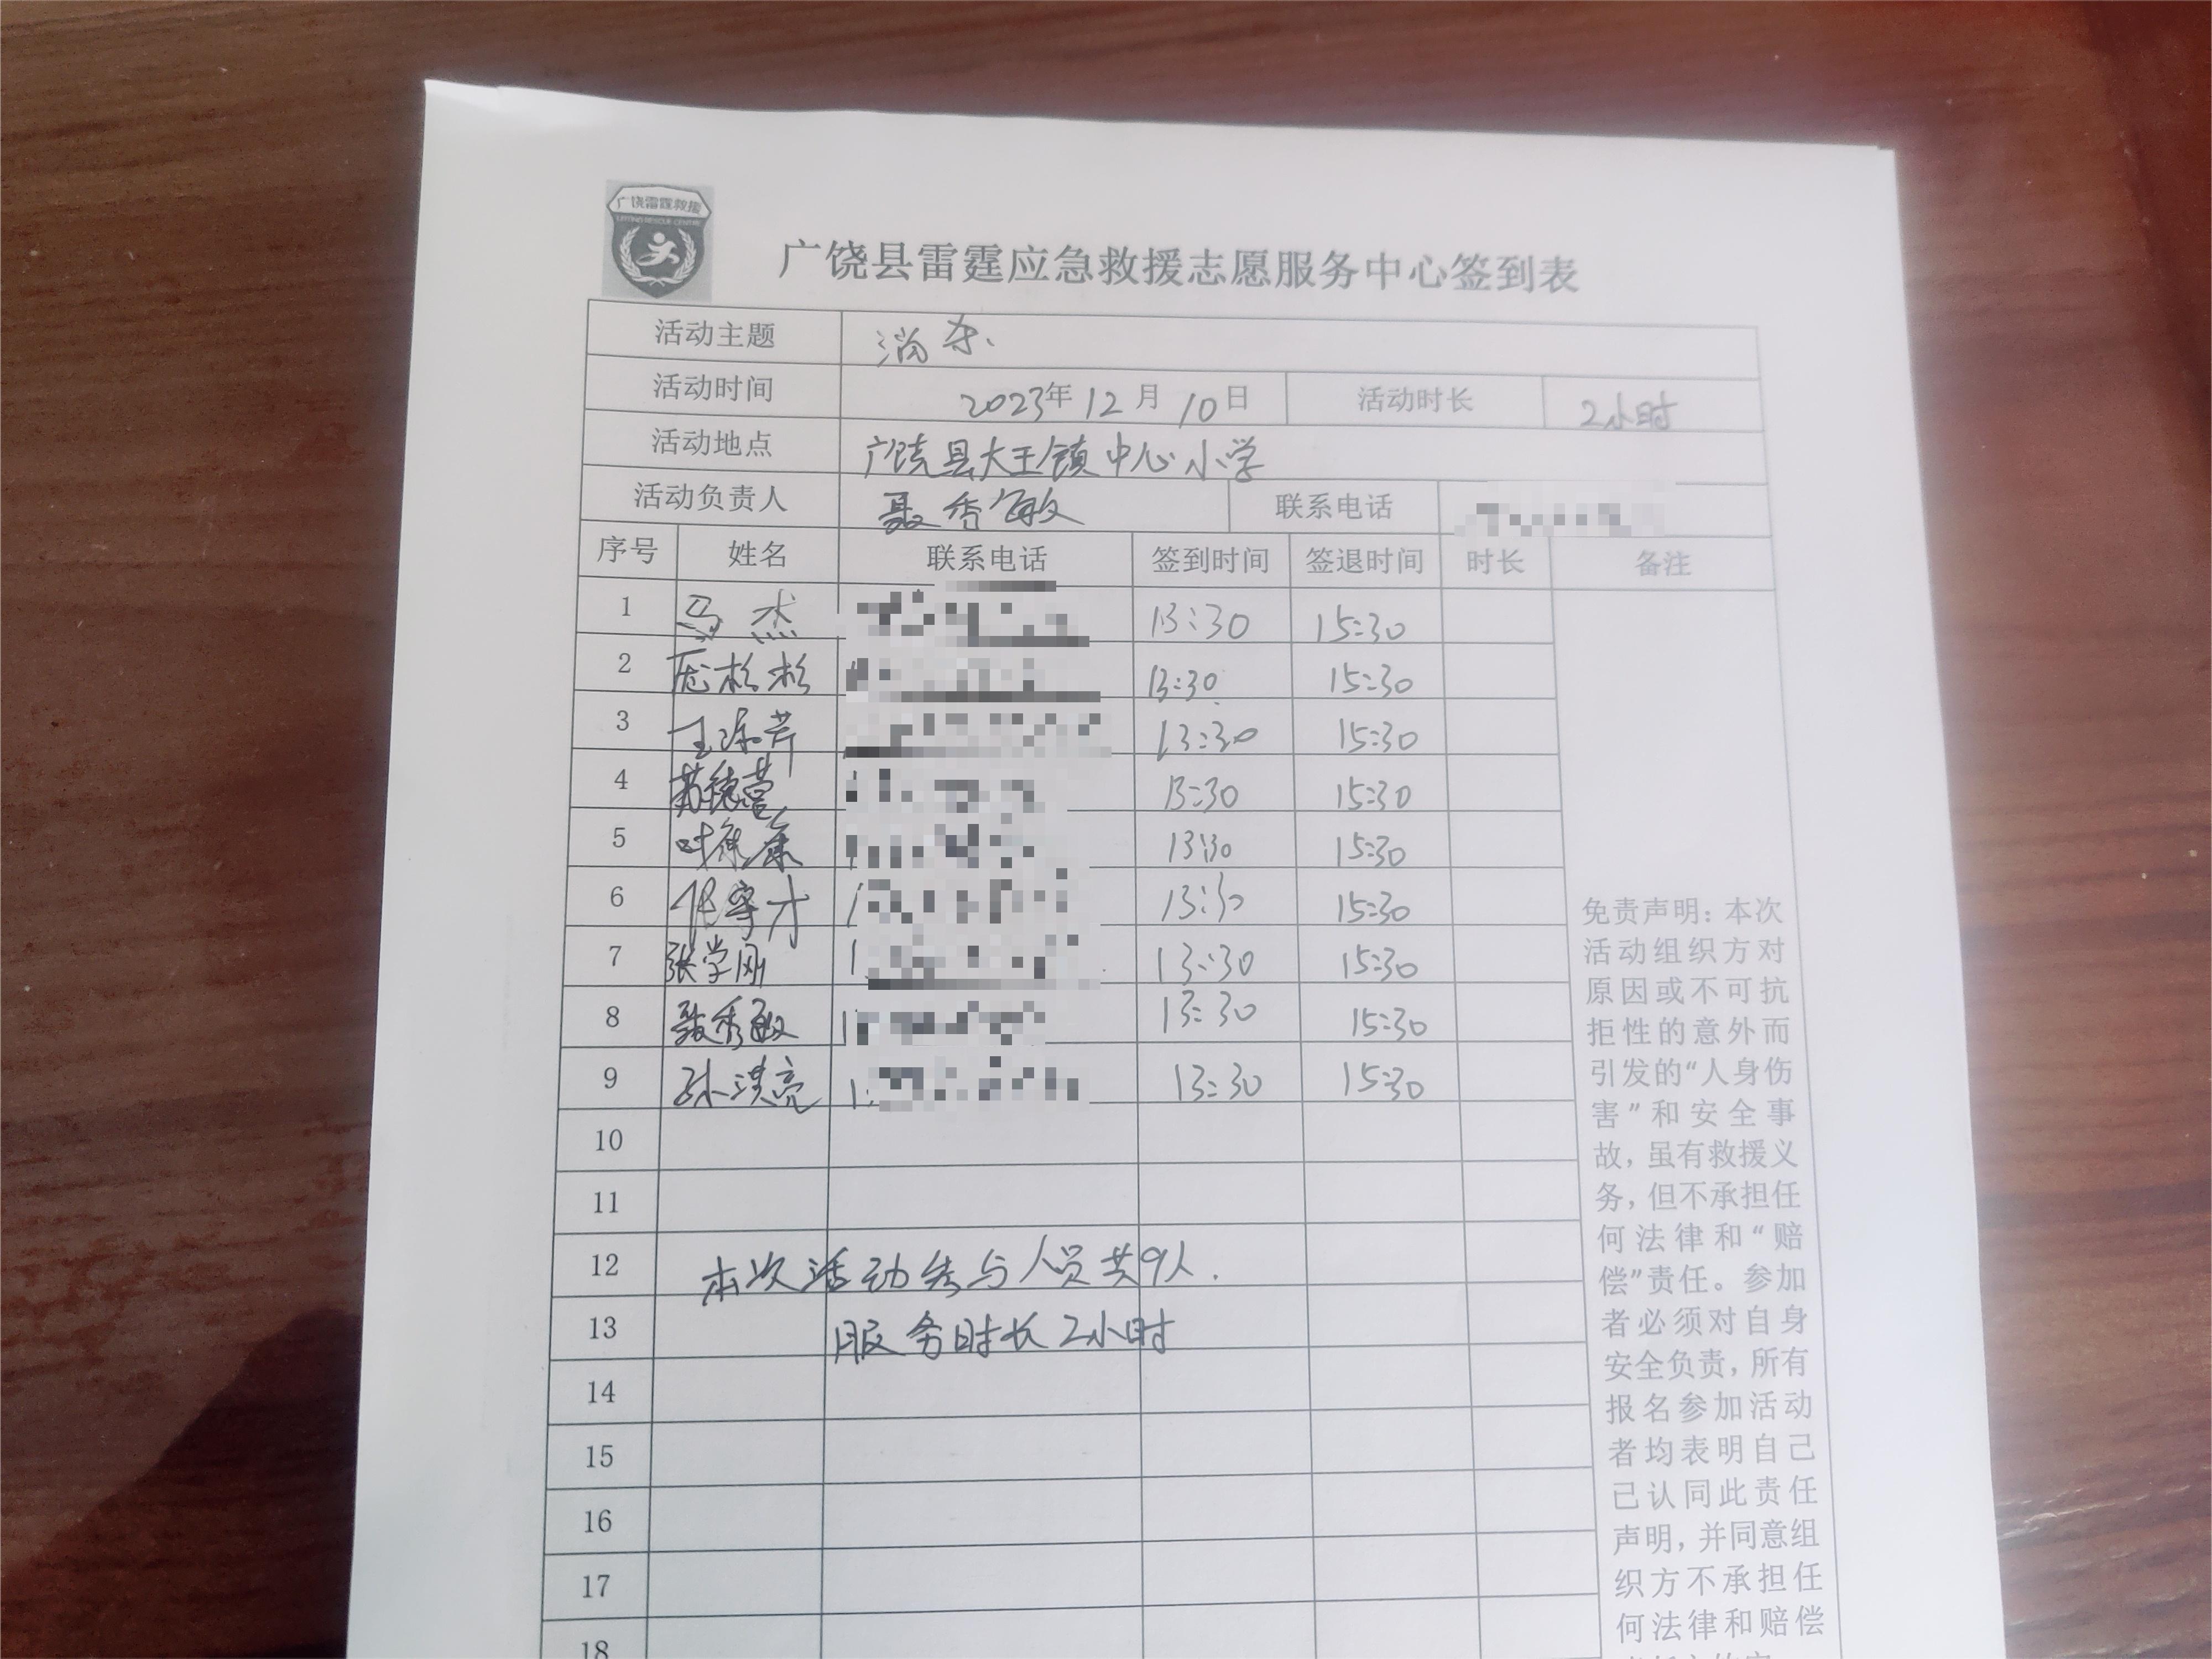 广饶雷霆救援
广饶县雷霆应急救援志愿服务中心签到表
活动主题 消杀
活动时间 2023年12月10日 活动时长 2小时
活动地点 广饶县大王镇中心小学
活动负责人 聂秀敏 联系电话
序号 姓名 联系电话 签到时间 签退时间 时长 备注
1 马杰 13:30 15:30
2 杉杉 13:30 15:30
3 王 芹 13:30 15:30
4 苏德营 13:30 15:30
5 叶康康 13:30 15:30
6 才 13:30 15:30
7 张学刚 13:30 15:30
8 聂秀敏 13:30 15:30
9 孙洪亮 13:30 15:30
10
11
12 本次活动参与人员共9人.
13 服务时长2小时
14
15
16
17
18
免责声明：本次
活动组织方对
原因或不可抗
拒性的意外而
引发的“人身伤
害”和安全事
故，虽有救援义
务，但不承担任
何法律和“赔
偿”责任。参加
者必须对自身
安全负责，所有
报名参加活动
者均表明自己
已认同此责任
声明，并同意组
织方不承担任
何法律和赔偿